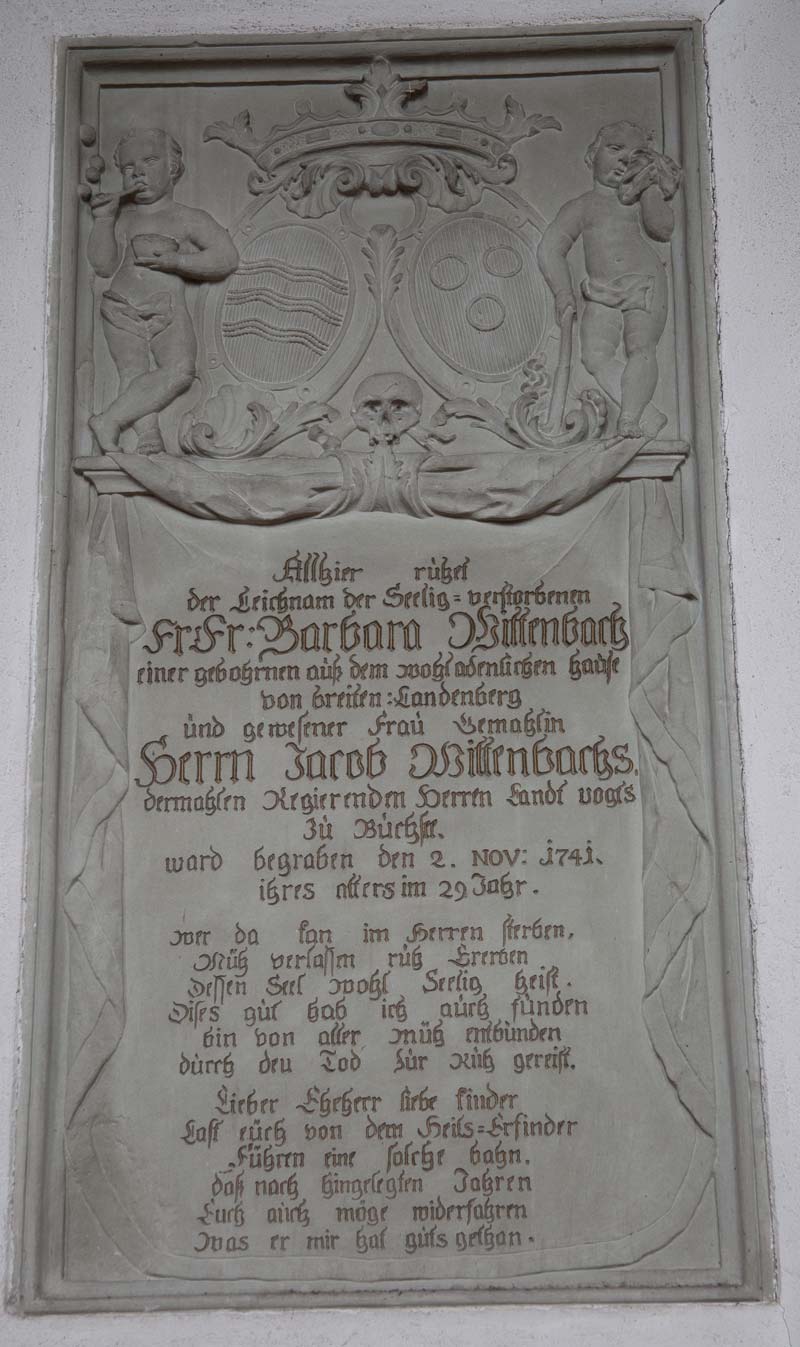 Allhier rúhet
der Leichnam der Seelig=verstorbenen
Fr:Fr: Barbara Wittenbach
einer gebohrnen aúß dem wohl adenlichen haúse
von breiten:Landenberg
únd gewesener Fraú Gemahlin
Herrn Jacob Wittenbachs.
dermahlen Regierenden Herren Landt vogts
Zú Búchsee.
ward begraben den 2. NOV: .1741.
ihres alters im 29 Jahr.
Wer da kan im Herren sterben,
Múh verlassen rúh Ererben
Dessen Seel wohl Seelig heist.
Dises gút hab ich aúch fúnden
bin von aller múh entbúnden
dúrch den Tod zúr Rúh gereist.
Lieber Eheherr liebe kinder
Last eúch von dem Heils=Erfinder
Fúhren eine solche bahn.
daß nach hingelegten Jahren
Eúch aúch möge widerfahren
Was er mir hat gúts gethan.